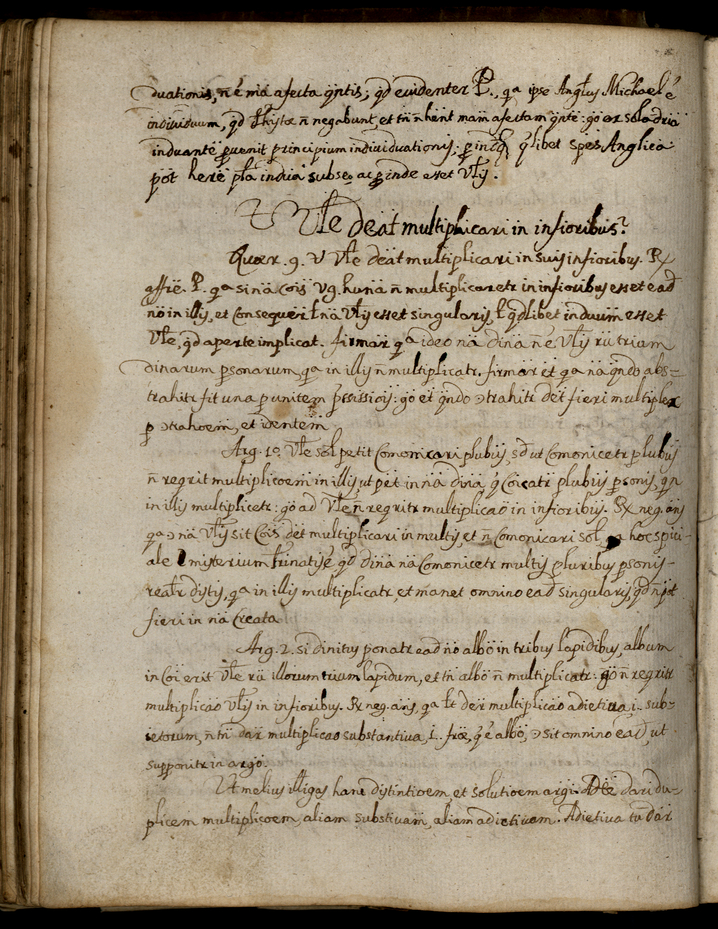 duationis, ñ é mã afecta q̃ntis; qd euidenter P., q̃a ipse Anglus Michael é
indiuiduum, qd negabunt, et tñ ñ hent mam afectam q̃nte: go ex sola dria
induante puenit principium indiuiduationis: q̃libet spes Anglica
pot here pla indiua subse, ac pinde esset Vlis.
Vle deat multiplicari in infioribus?
Quær. 9. V Vle deat multiplicari in suis infioribus. R/
affire. P. q̃a si nã cois Vg. huna ñ multiplicaretr in infioribus esset ead
no in illis, et consequer t nã Vlis esset singularis, t qdlibet induum esset
Vle, qd aperte implicat. firmar q̃a ideo nã dina ñ é Vlis rũ trium
dinarum psonarum, q̃a in illis ñ multiplicatr. firmar et q̃a nã qndo abs=
trahitr fit una p unitem pssissiois: go et qndo ↄtrahitr det fieri multiplex
p ↄtrahoem, et identem
Arg. 1.º Vle sol petit Comonicari plubus, sd ut Comonicetr plubus
ñ regrit multiplicoem in illis, ut pet in nã dina q̃ Coicatr plubus psonis, q̃n
in illis multiplicetr: go ad Vle ñ regritr multiplicao in infioribus. R/ neg. ans
q̃a ↄ nã Vlis sit Cois, det multiplicari in multis, et ñ Comonicari sol, a hoc speci-
ale misterium trinatis é, qd dina nã Comonicetr multis pluribus psonis
realr distis, q̃a in illis multiplicatr, et manet omnino ead singularis, qd ñ pot
fieri in nã Creata
Arg. 2. si diuinitus ponatr ead no albo in tribus lapidibus, album
in Coi erit Vle rũ illorum trium lapidum, et tñ albo ñ multiplicatr: go ñ regritr
multiplicao Vlis in infioribus. R/ neg. ans, q̃a lt detr multiplicao adietiua, i. sub-
ietorum, ñ tñ dar multiplicao substantiua, i. fræ, q̃ é albo, ↄ sit omnino ead, ut
supponitr in argo.
Ut melius illigas hanc distintioem, et solutioem argi. Adte dari du-
plicem multiplicoem, aliam substiuam, aliam adietiuam. Adietiua tũ dar